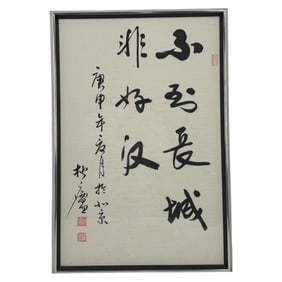 不到長城
非好汉
庚申年夏月於北京